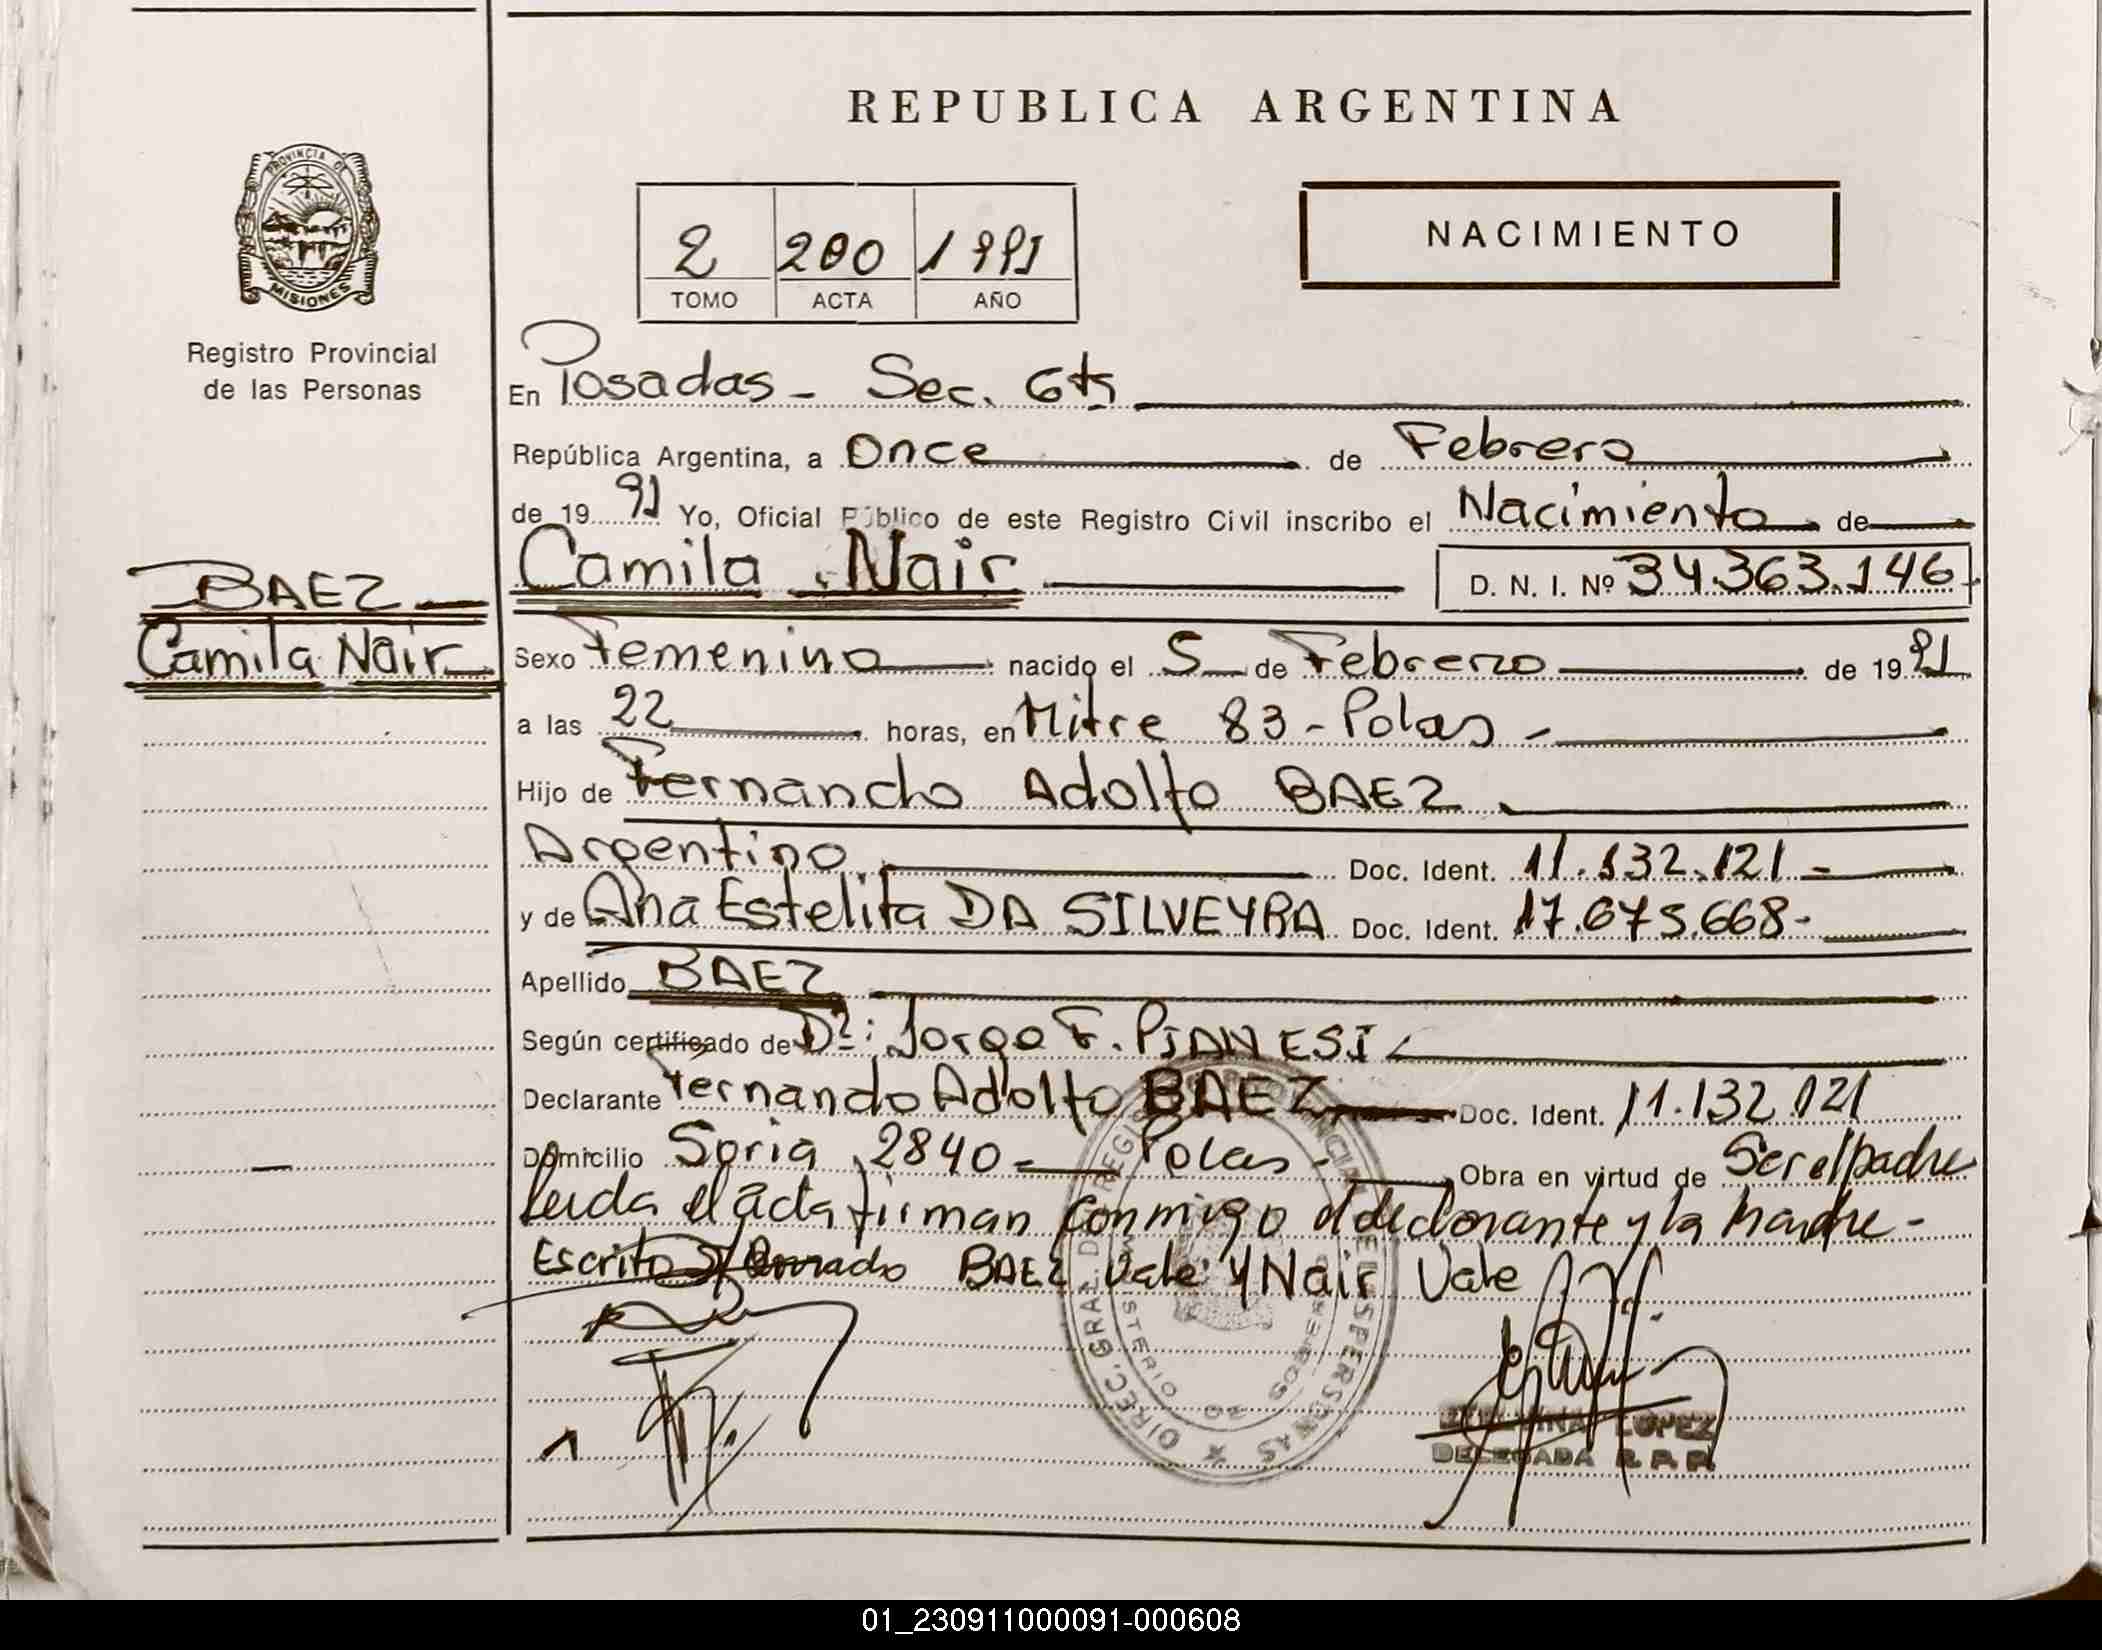 REPUBLICA ARGENTINA
PROVINCIA DE
MISIONES
Registro Provincial
de las Personas
NACIMIENTO
2 200 1991
TOMO ACTA AÑO
En Posadas - Sec. 6ta
República Argentina, a Once de Febrero
de 1991 Yo, Oficial Público de este Registro Civil inscribo el Nacimiento de
Camila Nair D. N. I. Nº 34.363.146
BAEZ
Camila Nair
Sexo Femenino nacido el 5 de Febrero de 1991
a las 22 horas, en Mitre 83 - Pdas -
Hijo de Fernando Adolfo BAEZ
Argentino Doc. Ident. 11.132.121 -
y de Ana Estelita DA SILVEYRA Doc. Ident. 17.675.668 -
Apellido BAEZ
Según certificado de Dr: Jorge F. PIANESI
Declarante Fernando Adolfo BAEZ Doc. Ident. 11.132.121
Domicilio Soria 2840 - Pdas - Obra en virtud de Ser el padre
Leida el acta firman conmigo el declarante y la madre -
Escrito s/ Borrado BAEZ Vale y Nair Vale
LOPEZ
DELEGADA R.P.P.
01_230911000091-000608